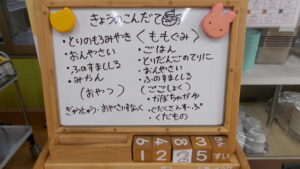 きょうのこんだて
・とりのもろみやき
・おんやさい
・ふのすましじる
・みかん
(おやつ)
ぎゅうにゅう・おやさいすなっく
<ももぐみ>
・ごはん
・とりだんごのてりに
・おんやさい
・ふのすましじる
(ごごしょく)
・かぼちゃがゆ
・ぐだくさんすーぷ
・くだもの
6 8 9 3
1 2 2 5 すい